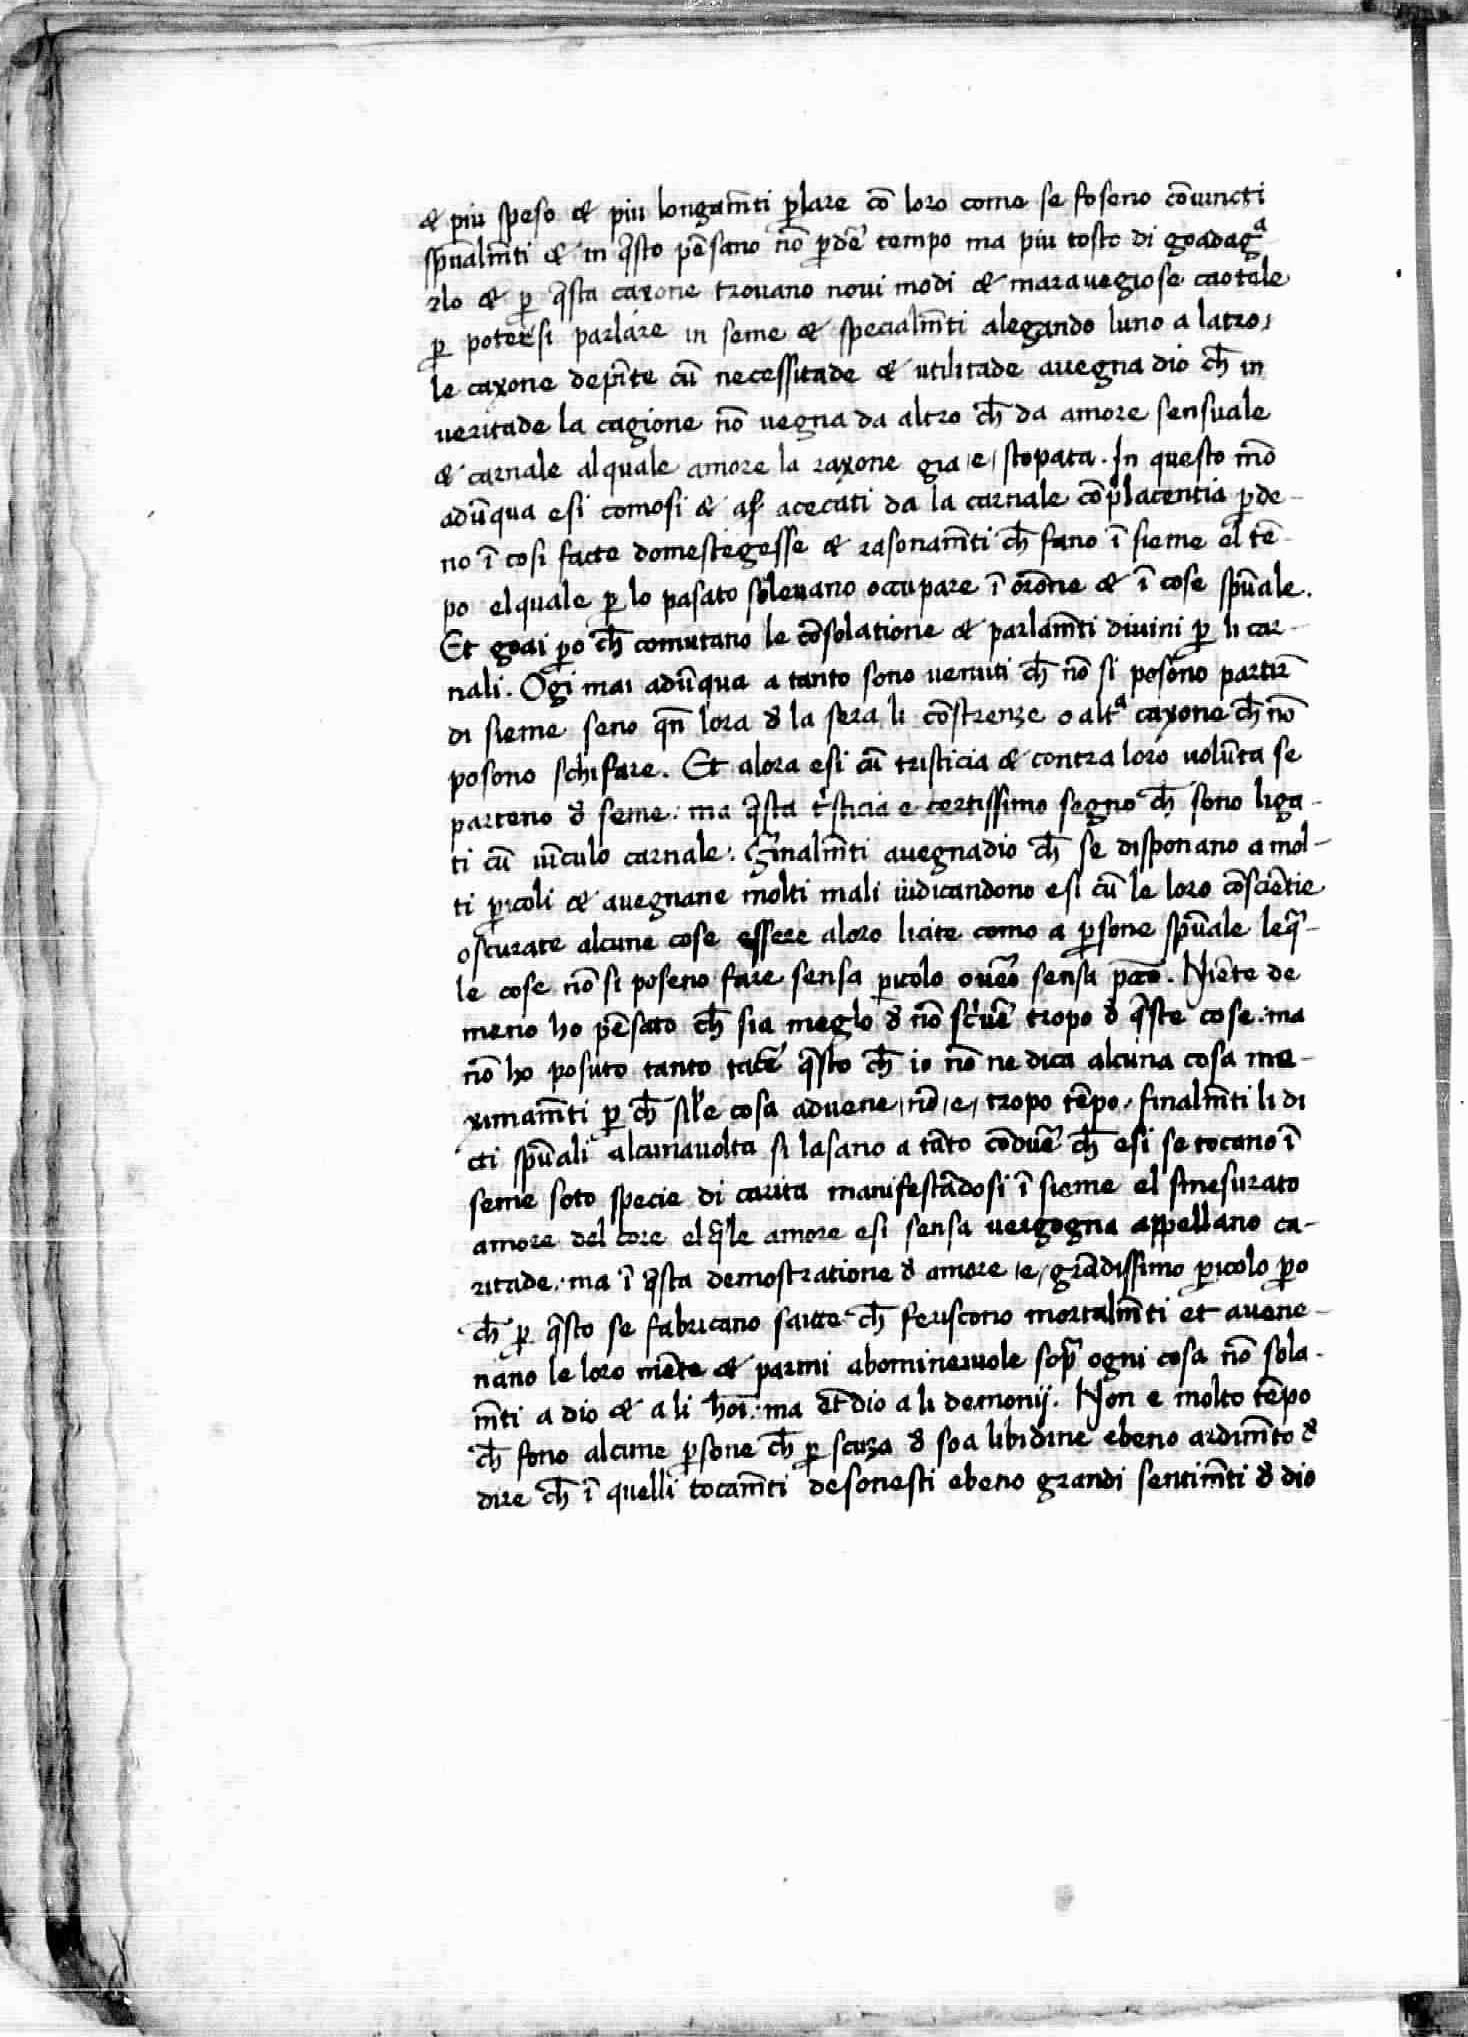 & più speso & più longam̄ti ꝑlare cō loro como se foseno cōiuncti
spūalm̄ti & in q̄sto pēsano nō ꝑdē tempo ma più tosto di goadagᵃ
rlo & ꝑ q̄sta caxone trovano novi modi & maravegiose caotele
ꝑ potersi parlare in seme & specialm̄ti alegando luno a latro,
le caxone depīte cū necessitade & utilitade avegna dio ch̄ in
veritade la cagione nō vegna da altro ch̄ da amore sensuale
& carnale alquale amore la raxone gia /e/ stopata. In questo mō
adūqua esi comosi & acecati da la carnale cōplacentia ꝑde-
no ī cosi facte domestegesse & rasonam̄ti ch̄ fano ī sieme el tē-
po elquale ꝑ lo pasato solevano ocupare ī orōne & ī cose spūale.
Et goai ꝑo ch̄ comutano le cōsolatione & parlam̄ti divini ꝑ li car-
nali. Ogi mai adūqua a tanto sono venuti ch̄ nō si posono partir̄
di sieme seno qn̄ lora đ la sera li cōstrenze o altᵃ caxone ch̄ nō
posono schifare. Et alora esi cū tristicia & contra loro volūta se
parteno đ seme: ma q̄sta tⁱsticia e certissimo segno ch̄ sono liga-
ti cū vīculo carnale. Finalm̄ti avegnadio ch̄ se disponano a mol-
ti ꝑicoli & avegnane molti mali iudicandono esi cū le loro cōsciētie
oscurate alcune cose essere aloro licite como a ꝑsone spūale leq̄-
le cose nō si poseno fare sensa ꝑicolo oveō sensa pc̄to. Niēte de
meno ho pēsato ch̄ sia meglo đ nō scⁱvē tropo đ q̄ste cose: ma
nō ho posuto tanto tacē q̄sto ch̄ io nō ne dica alcuna cosa ma-
ximam̄ti ꝑ ch̄ sil̄e cosa advene, nō /e/ tropo tēpo, finalm̄ti li di
cti spūali alcunavolta si lasano a tāto cōduē ch̄ esi se tocano ī
seme soto specie di carita manifestādosi ī sieme el smesurato
amore del core elq̄le amore esi sensa vergogna appellano ca-
ritade: ma ī q̄sta demostratione đ amore /e/ grādissimo ꝑicolo ꝑo
ch̄ ꝑ q̄sto se fabricano saitte ch̄ feriscono mortalm̄ti et avene-
nano le loro mēte & parmi abominevole sopᵃ ogni cosa nō sola-
m̄ti a dio & a li hoī: ma et̄dio a li demonij. Non e molto tēpo
ch̄ fono alcune ꝑsone ch̄ ꝑ scuza đ soa libidine ebeno ardim̄to đ
dire ch̄ ī quelli tocam̄ti desonesti ebeno grandi sentim̄ti đ dio